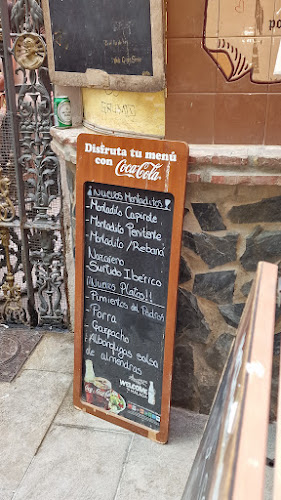 Disfruta tu menú
con Coca-Cola
¡Nuevos Montaditos!
- Montadito Capirote
- Montadito Penitente
- Montadito/Rebaná
Nazareno
- Surtido Ibérico
¡¡Nuevos Platos!!
- Pimientos del Padrón
- Porra
- Gazpacho
- Albóndigas salsa
de almendras
WELCOME